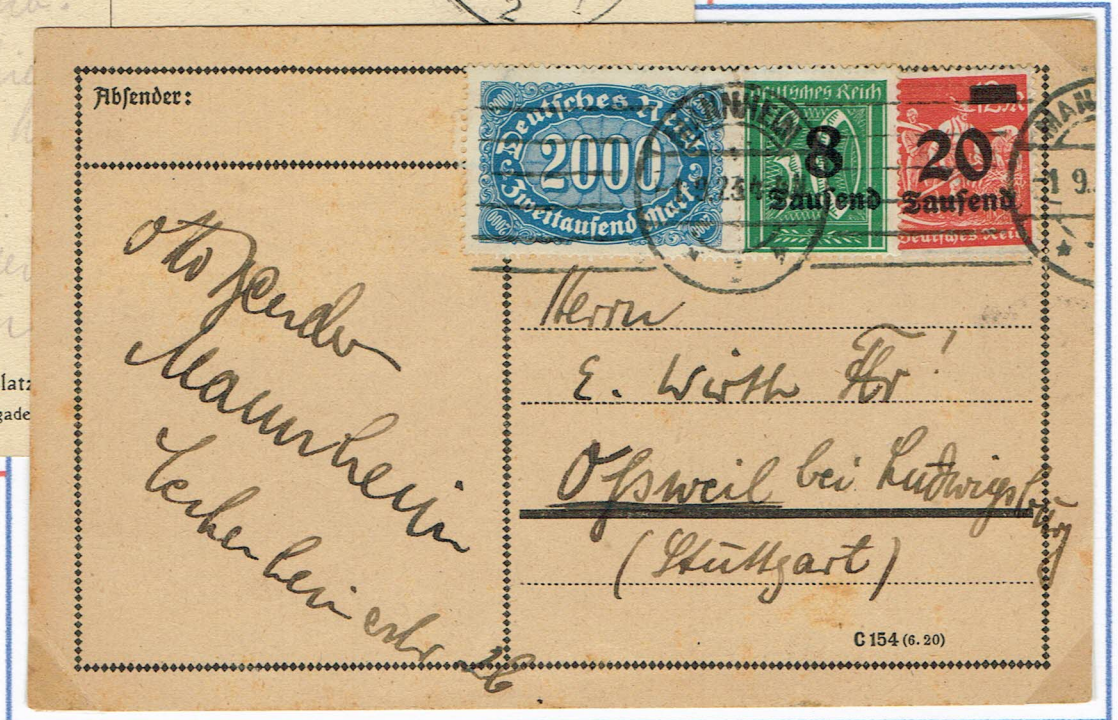 Absender:
Deutsches Reich
2000
Zweitausend Mark
Deutsches Reich
8
Tausend
20
Tausend
Deutsches Reich
MANNHEIM
MAN
1 9.
Otto Zender
Mannheim
26
Herrn
E. Wirth
Oßweil bei Ludwigsburg
(Stuttgart)
C 154 (6. 20)
latz
gade
2 1